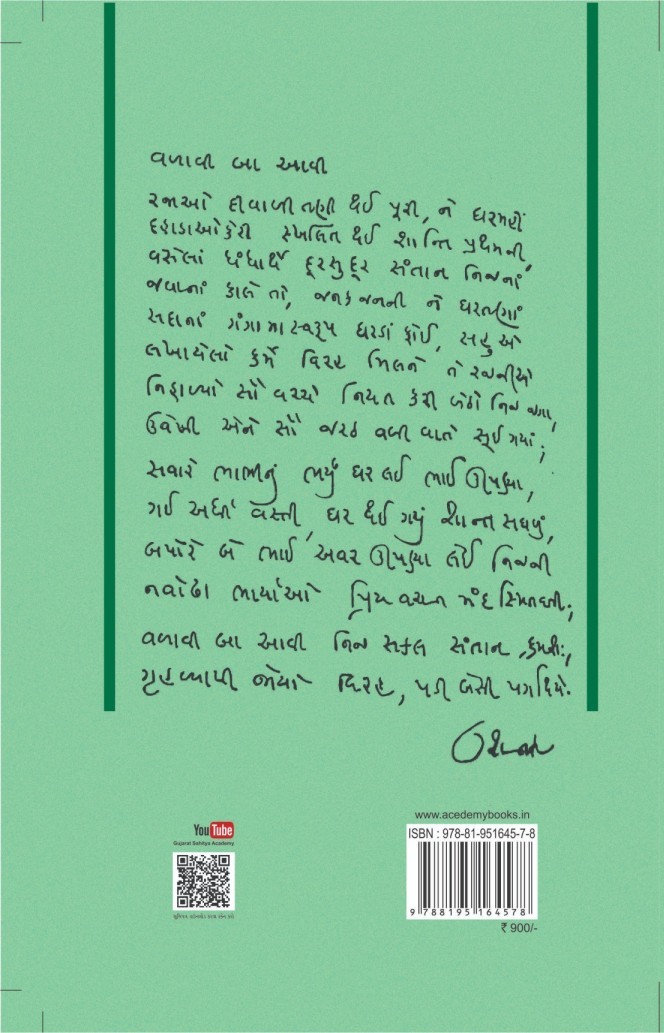 વળાવી બા આવી
રજાઓ દીવાળી તણી થઈ પૂરી, ને ઘરમહીં
દહાડાઓકેરી સ્ખલિત થઈ શાન્તિ પ્રથમની,
વસેલાં ધંધાર્થે દૂરસુદૂર સંતાન નિજનાં
જવાનાં કાલે તો, જનકજનની ને ઘરતણાં
સદાનાં ગંગામાસ્વરૂપ ઘરડાં ફોઈ, સહુએ
લખાયેલો કર્મે વિરહ મિલને તે રજનીયે
નિહાળ્યો સૌ વચ્ચે નિયત કરી બેઠો નિજ જગા,
ઉવેખી એને સૌ જરઠ વળી વાતે સૂઈ ગયાં;
સવારે ભાભીનું ભર્યું ઘર લઈ ભાઈ ઊપડ્યા,
ગઈ અર્ધી વસ્તી, ઘર થઈ ગયું શાન્ત સઘળું,
બપોરે બે ભાઈ અવર ઊપડ્યા લેઈ નિજની
નવોઢા ભાર્યાઓ પ્રિય વચન મંદસ્મિતવતી;
વળાવી બા આવી નિજ સકલ સંતાન ક્રમશઃ,
ગૃહવ્યાપી જોયો વિરહ, પડી બેસી પગથિયે.
ઉશનસ્
www.acedemybooks.in
YouTube
Gujarat Sahitya Academy
ISBN : 978-81-951645-7-8
9 788195 164578
₹ 900/-